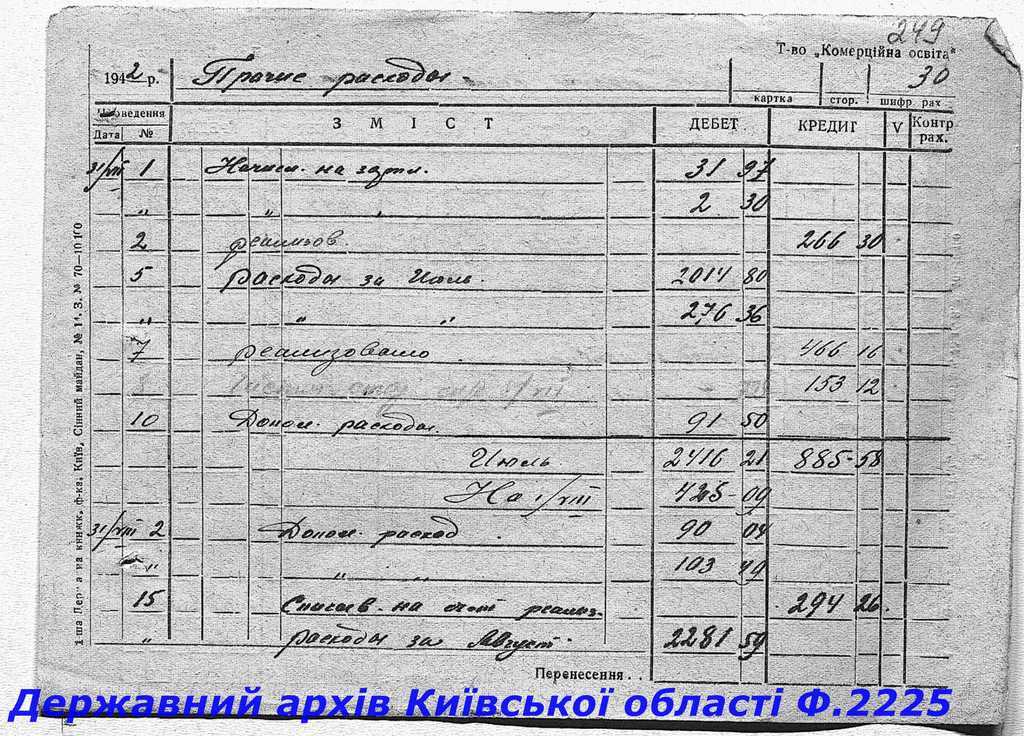 249
Т-во „Комерційна освіта"
1942 р. Прочие расходы 30
картка стор. шифр рах.
Проведення З М І С Т ДЕБЕТ КРЕДИТ V Контр рах.
Дата №
31/VII 1 Начисл. на зарпл. 31 97
„ „ „ 2 30
2 реализов. 266 30
5 расходы за Июль. 2014 80
„ „ „ 276 36
7 реализовано 466 16
153 12
10 Допол. расходы. 91 50
Июль. 2416 21 885-58
На 1/VIII 425-09
31/VIII 2 Допол. расход 90 04
„ „ „ 103 49
15 на счёт реализ. 294 26
„ расходы за Август 2281 59
Перенесення . .
Київ, Сінний майдан, № 14. З. № 70—10
Державний архів Київської області Ф.2225